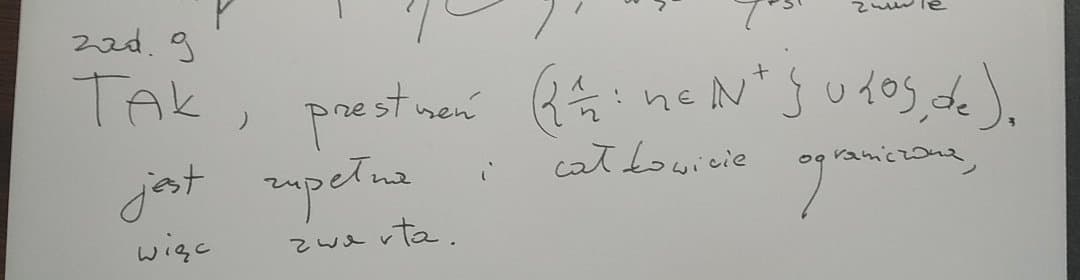 zad. 9
TAK, przestrzeń ({1/n : n ∈ ℕ⁺} ∪ {0}, de).
jest zupełna i całkowicie ograniczona,
więc zwarta.